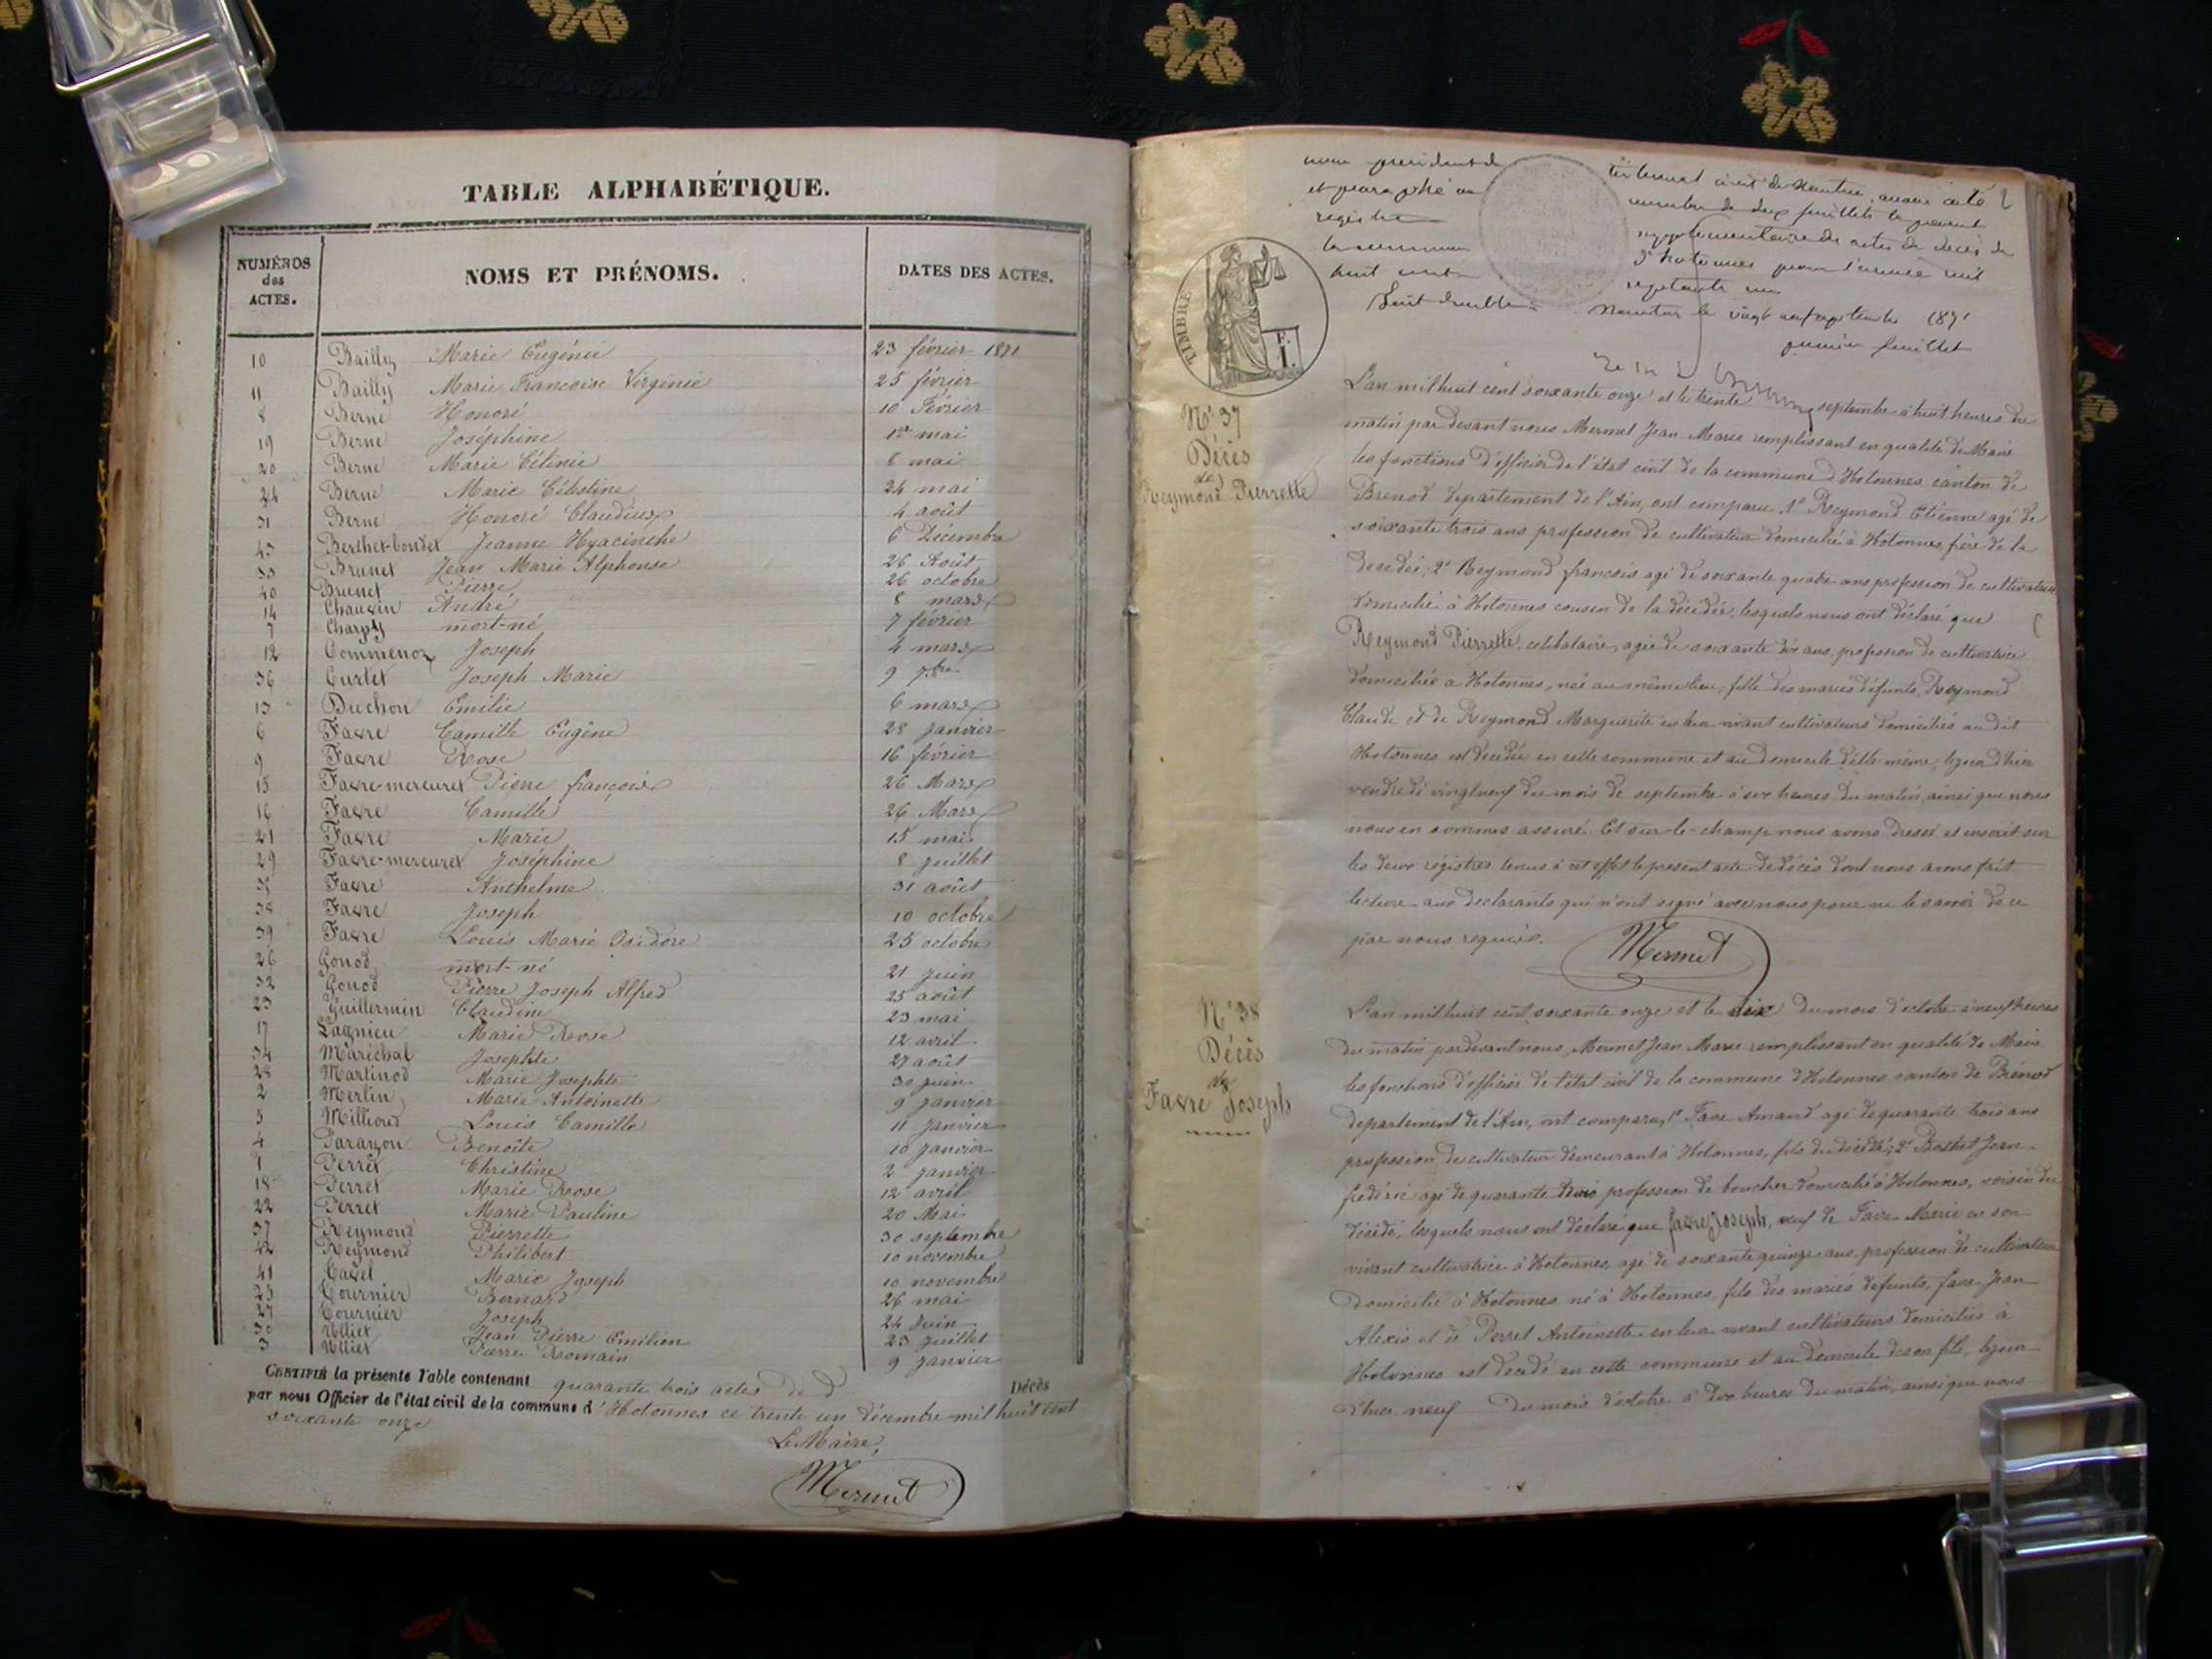 TABLE ALPHABÉTIQUE.
NUMÉROS des ACTES. NOMS ET PRÉNOMS. DATES DES ACTES.
10 Bailly Marie Eugénie 23 février 1871
11 Bailly Marie Francoise Virginie 25 février
8 Berne Honoré 10 Février
19 Berne Joséphine 1er mai
20 Berne Marie Célinie 8 mai
24 Berne Marie Célestine 24 mai
31 Berne Honoré Claudius 4 août
43 Berthet-bondet Jeanne Hyacinthe 6 Décembre
33 Brunet Jean Marie Alphonse 26 Août
40 Brunet Pierre 26 octobre
14 Chauvin André 8 mars
7 Charpy mort-né 7 février
12 Commenoz Joseph 4 mars
36 Curtet Joseph Marie 9 7bre
13 Duchon Emilie 6 mars
6 Favre Camille Eugêne 28 janvier
9 Favre Rose 16 février
15 Favre-mercuret Pierre françois 26 Mars
16 Favre Camille 26 Mars
21 Favre Marie 15 mai
29 Favre-mercuret Joséphine 8 juillet
35 Favre Anthelme 31 août
38 Favre Joseph 10 octobre
39 Favre Louis Marie Isidore 25 octobre
26 Gonod mort-né 21 juin
32 Gonod Pierre Joseph Alfred 25 août
23 Guillermin Claudine 23 mai
17 Lagnieu Marie Rose 12 avril
34 Maréchal Josephte 27 août
28 Martinod Marie Josephte 30 juin
2 Merlin Marie Antoinette 9 janvier
5 Milliond Louis Camille 11 janvier
4 Paragon Benoîte 10 janvier
1 Perret Christine 2 janvier
18 Perret Marie Rose 12 avril
22 Perret Marie Pauline 20 Mai
37 Reymond Pierrette 30 septembre
42 Reymond Philibert 10 novembre
41 Marie Joseph 10 novembre
25 Tournier Bernard 26 mai
27 Tournier Joseph 24 Juin
30 Ulliet Jean Pierre Emilien 23 juillet
3 Ulliet Pierre Romain 9 janvier
CERTIFIÉ la présente Table contenant quarante trois actes de Décès
par nous Officier de l'état civil de la commune d'Hotonnes ce trente un décembre mil huit cent
soixante onze
Le Maire,
Mermet
président
et paraphé
registre
la commune
huit cent
tribunal civil de Nantua, avoir coté
nombre de deux feuillets le présent
supplémentaire des actes de décès de
d'hotonnes pour l'année mil
Nantua le vingt septembre 1871
premier feuillet
TIMBRE
F.
I.
N° 37
Décès
de
Reymond Pierrette
L'an mil huit cent soixante onze et le trente septembre à huit heures du
matin par devant nous Mermet Jean Marie remplissant en qualité de Maire
les fonctions d'officier de l'état civil de la commune d'Hotonnes canton de
Brenod département de l'Ain, ont comparu 1° Reymond Etienne agé de
soixante trois ans profession de cultivateur domicilié à Hotonnes, frère de la
decedée, 2° Reymond francois agé de soixante quatre ans profession de cultivateur
domicilié à Hotonnes cousin de la décédée, lesquels nous ont déclaré que
Reymond Pierrette, celibataire, agée de soixante dix ans, profession de cultivatrice
domiciliée à Hotonnes, née au même lieu, fille des mariés défunts, Reymond
Claude et de Reymond Marguerite en leur vivant cultivateurs domiciliés au dit
Hotonnes est decedée en cette commune et au domicile d'elle même, le jour d'hier
vendredi vingt neuf du mois de septembre à six heures du matin, ainsi que nous
nous en sommes assuré. Et sur-le-champ nous avons dressé et inscrit sur
les deux régistres tenus à cet effet le present acte de décès dont nous avons fait
lecture aux declarants qui n'ont signé avec nous pour ne le savoir de ce
par nous requis.
Mermet
N° 38
Décès
de
Favre Joseph
L'an mil huit cent soixante onze et le dix du mois d'octobre à neuf heures
du matin pardevant nous, Mermet Jean Marie remplissant en qualité de Maire
les fonctions d'officier de l'état civil de la commune d'Hotonnes canton de Brénod
departement de l'Ain, ont comparu, 1° Favre Amand agé de quarante trois ans
profession de cultivateur demeurant à Hotonnes, fils du décédé, 2° Jean
frédéric agé de quarante trois profession de boucher domicilié à Hotonnes, voisin du
décédé, lesquels nous ont déclaré que favre Joseph, veuf de Favre Marie en son
vivant cultivatrice à Hotonnes, agé de soixante quinze ans profession de cultivateur
Domicilié à Hotonnes né à Hotonnes, fils des mariés defunts, favre Jean
Alexis et de Perret Antoinette en leur vivant cultivateurs domiciliés à
Hotonnes est decedé en cette commune et au domicile de son fils, le jour
d'hier neuf du mois d'octobre à dix heures du matin, ainsi que nous